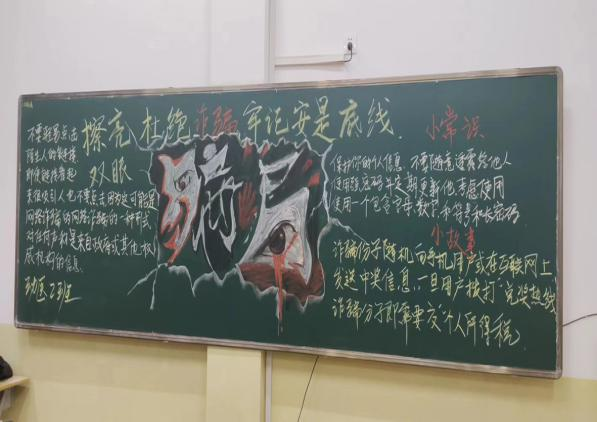 擦亮 杜绝诈骗 牢记安是底线.
双眼
不要轻易点击
陌生人的链接
即使链接看起
来很吸引人也不要点击因为这可能是
网络诈骗的一种形式
对任何声称是来自政府或其他权
威机构的信息
动医2班
骗局
小常识
保护你的个人信息 不要随意透露给他人
使用强密码并定期更新他考虑使用
使用一个包含字母、数字和符号和长密码
小故事
诈骗份子随机向手机用户或在互联网上
发送中奖信息,一旦用户拨打"兑奖热线
诈骗分子即称要交"个人所得税